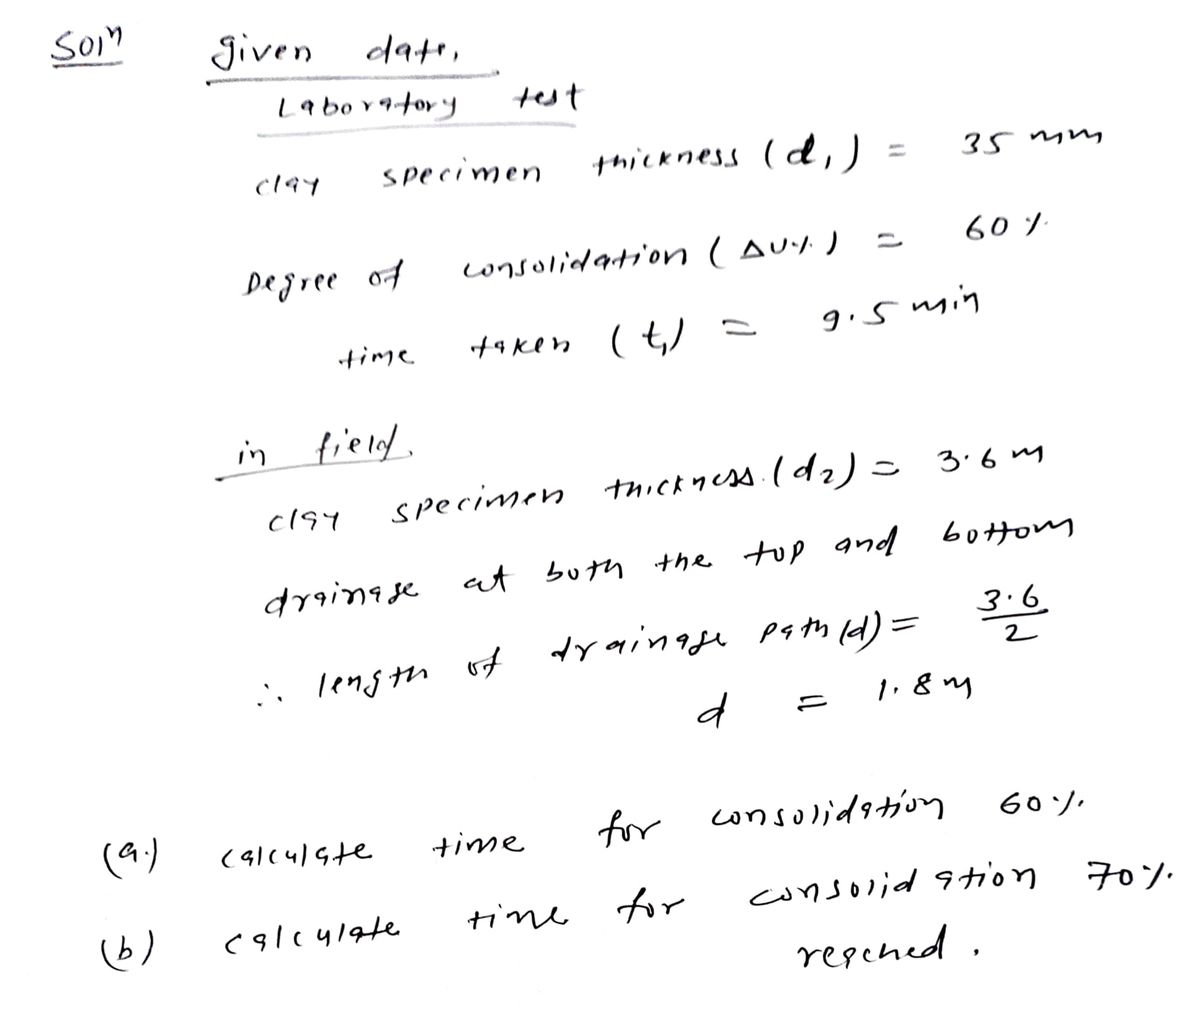 Solⁿ given date,
Laboratory test
clay specimen thickness (d₁) = 35 mm
Degree of consolidation (ΔU%) = 60 %
time taken (t₁) = 9.5 min
in field.
clay specimen thickness. (d₂) = 3.6 m
drainage at both the top and bottom
∴ length of drainage path (d) = 3.6/2
d = 1.8 m
(a.) calculate time for consolidation 60%.
(b) calculate time for consolidation 70%.
reached.